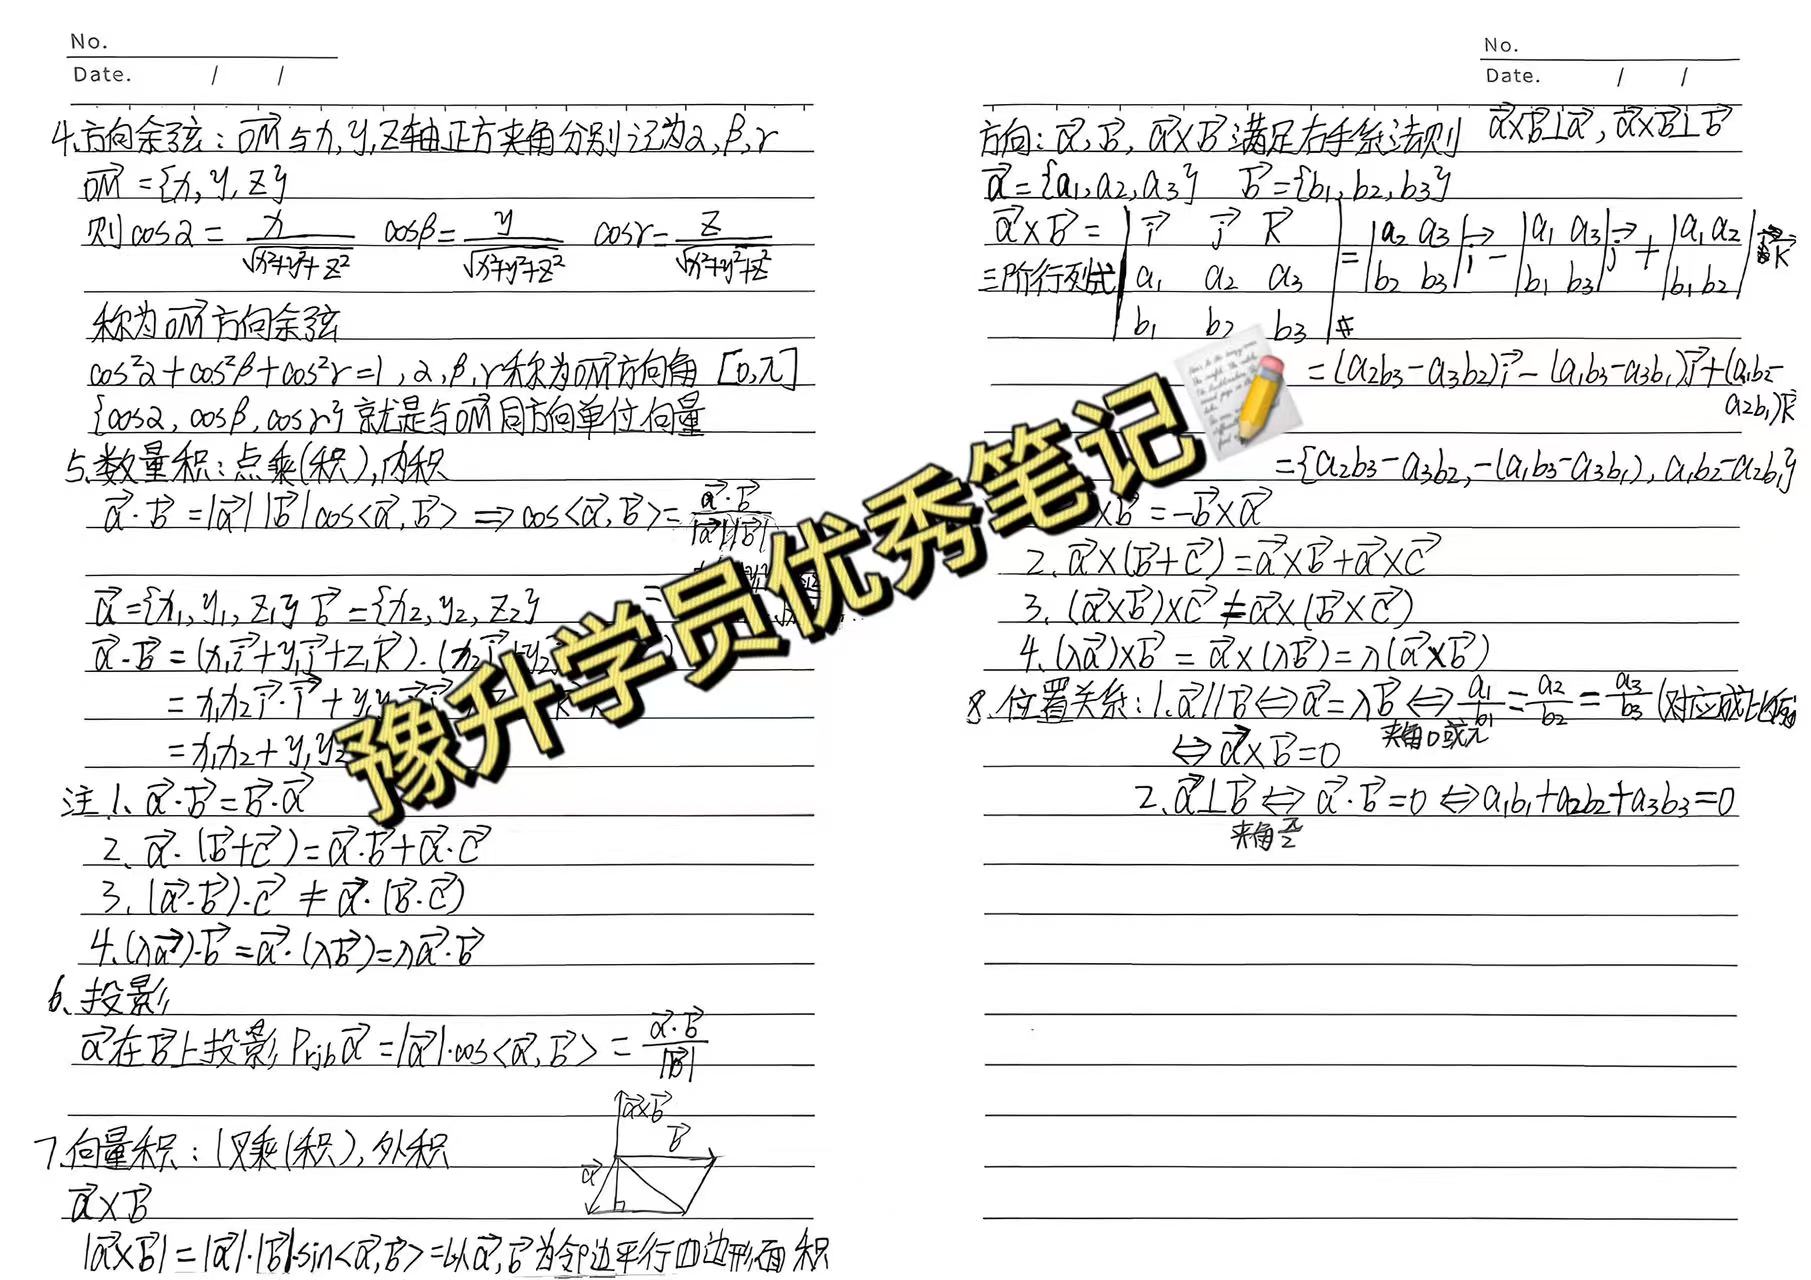 No.
Date. / /
4.方向余弦：OM→与x,y,z轴正方夹角分别记为α,β,γ
OM→={x,y,z}
则cosα=x/√(x²+y²+z²) cosβ=y/√(x²+y²+z²) cosγ=z/√(x²+y²+z²)
称为OM→方向余弦
cos²α+cos²β+cos²γ=1,α,β,γ称为OM→方向角[0,π]
{cosα,cosβ,cosγ}就是与OM→同方向单位向量
5.数量积：点乘(积),内积
a→·b→=|a→||b→|cos<a→,b→>⇒cos<a→,b→>=a→·b→/|a→||b→|
a→={x₁,y₁,z₁} b→={x₂,y₂,z₂} =
a→·b→=(x₁i→+y₁j→+z₁k→)·(x₂i→+y₂
=x₁x₂i→·i→+y₁y₂
=x₁x₂+y₁y₂
注1.a→·b→=b→·a→
2.a→·(b→+c→)=a→·b→+a→·c→
3.(a→·b→)·c→≠a→·(b→·c→)
4.(λa→)·b→=a→·(λb→)=λa→·b→
6.投影
a→在b→上投影Prjba→=|a→|·cos<a→,b→>=a→·b→/|b→|
7.向量积：叉乘(积),外积
a→×b→
a→×b→
b→
a→
|a→×b→|=|a→|·|b→|·sin<a→,b→>=以a→,b→为邻边平行四边形面积
豫升学员优秀笔记
No.
Date. / /
方向：a→,b→,a→×b→满足右手系法则 a→×b→⊥a→,a→×b→⊥b→
a→={a₁,a₂,a₃} b→={b₁,b₂,b₃}
a→×b→=|i→ j→ k→|=|a₂ a₃|i→-|a₁ a₃|j→+|a₁ a₂|k→
三阶行列式|a₁ a₂ a₃| |b₂ b₃| |b₁ b₃| |b₁ b₂|
|b₁ b₂ b₃|
=(a₂b₃-a₃b₂)i→-(a₁b₃-a₃b₁)j→+(a₁b₂-
a₂b₁)k→
={a₂b₃-a₃b₂,-(a₁b₃-a₃b₁),a₁b₂-a₂b₁}
×b→=-b→×a→
2.a→×(b→+c→)=a→×b→+a→×c→
3.(a→×b→)×c→≠a→×(b→×c→)
4.(λa→)×b→=a→×(λb→)=λ(a→×b→)
8.位置关系：1.a→∥b→⇔a→=λb→⇔a₁/b₁=a₂/b₂=a₃/b₃(对应成比例)
夹角0或π
⇔a→×b→=0
2.a→⊥b→⇔a→·b→=0⇔a₁b₁+a₂b₂+a₃b₃=0
夹角π/2